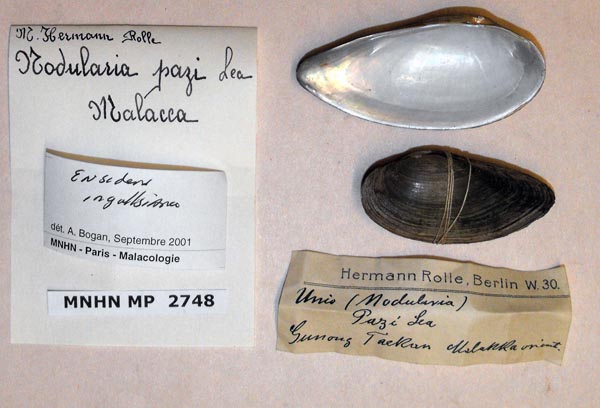 M. Hermann Rolle
Nodularia pazi Lea
Malacca
Ensidens
ingallsianus
dét. A. Bogan, Septembre 2001
MNHN - Paris - Malacologie
MNHN MP 2748
Hermann Rolle, Berlin W. 30.
Unio (Nodularia)
Pazi Lea
Gunong Taekan Malakka orient.